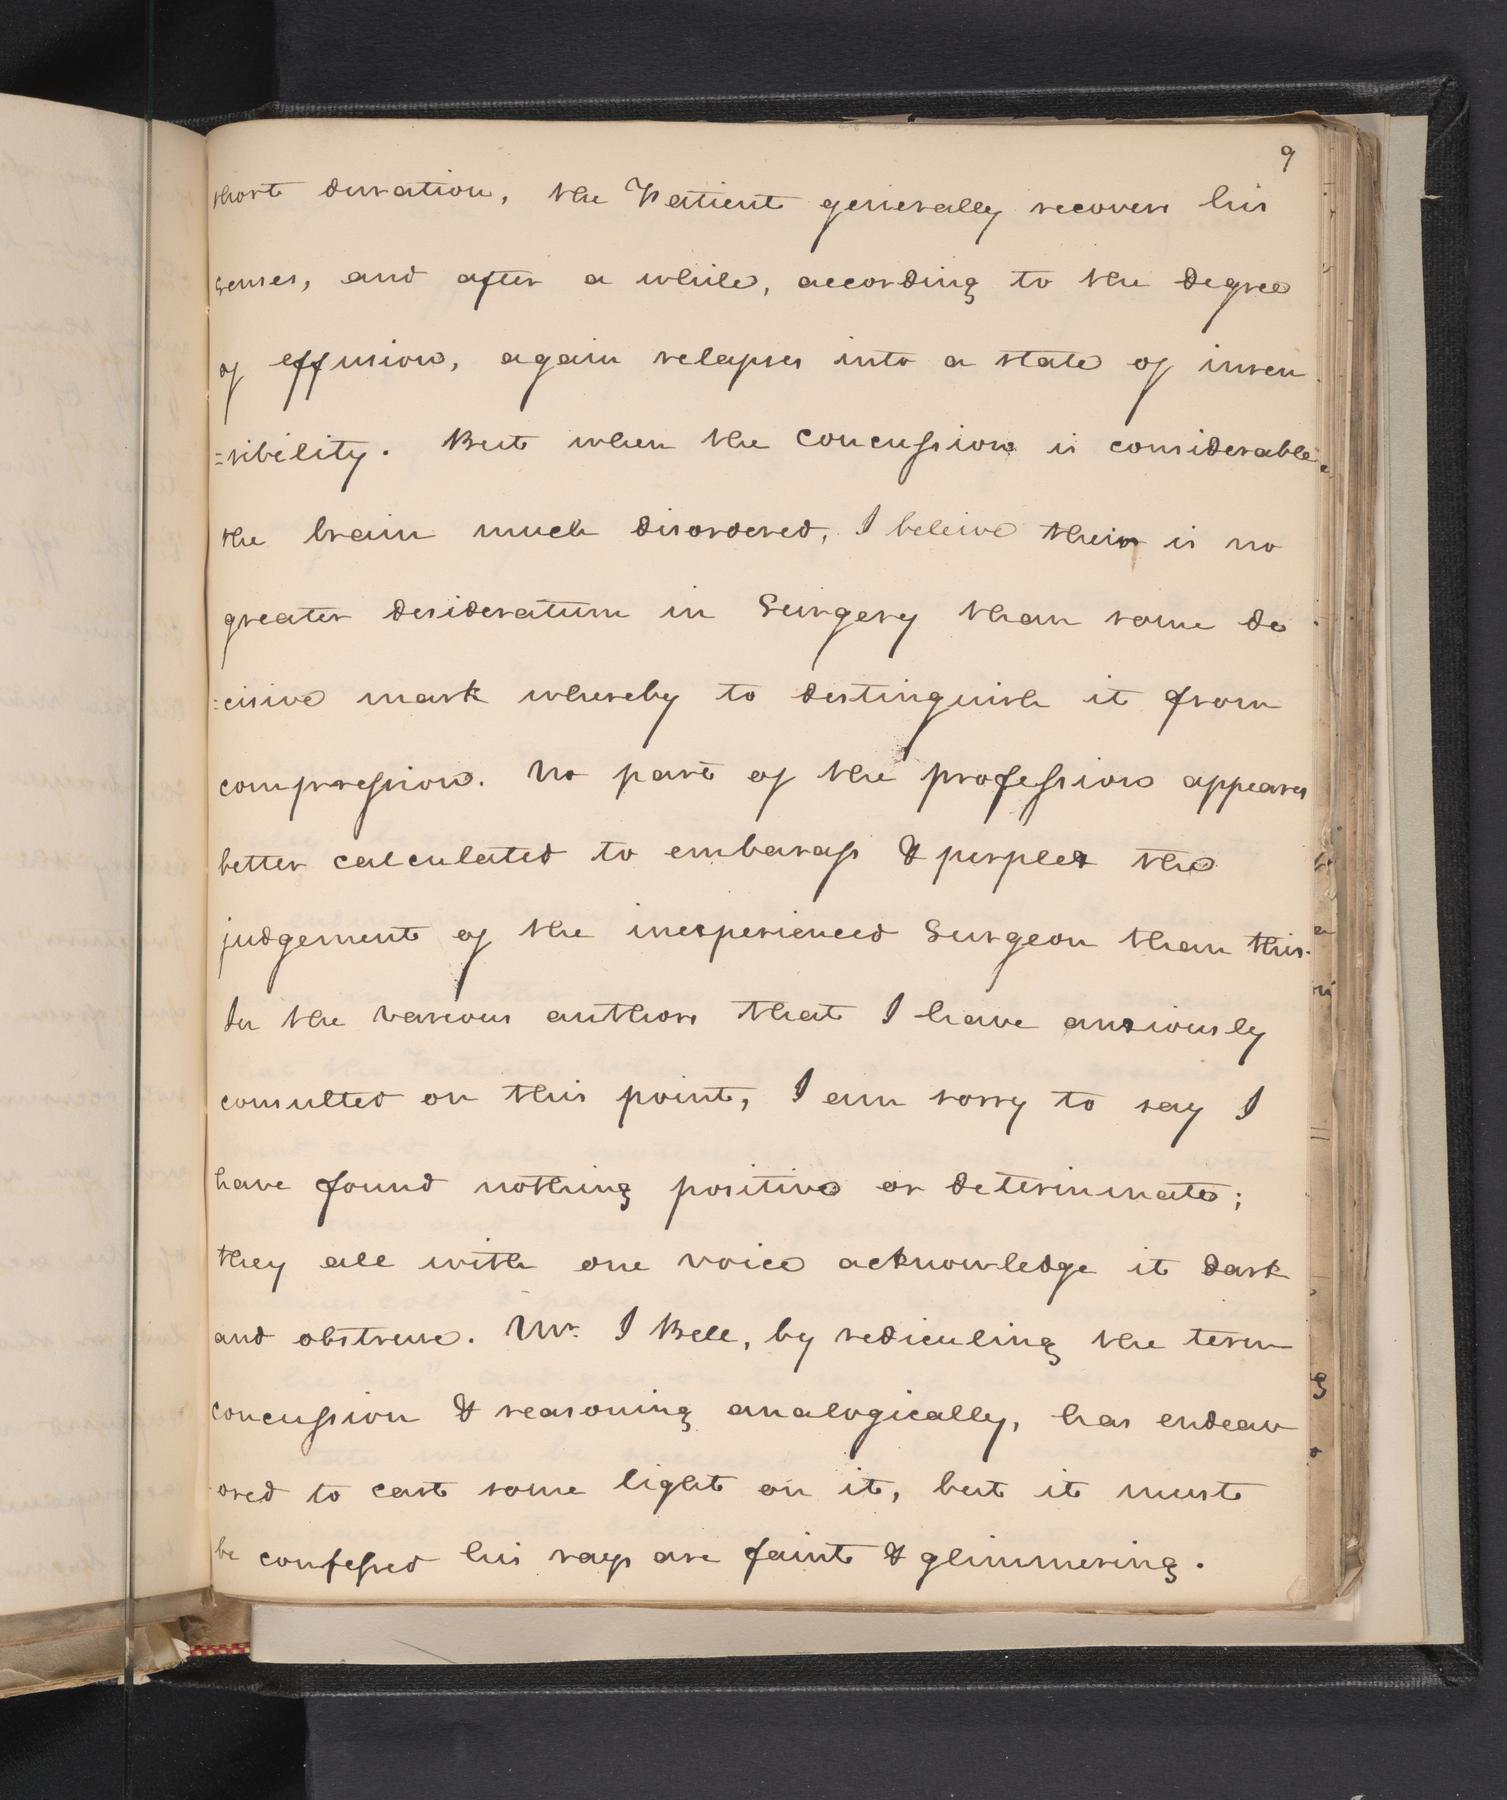 9
short duration, the Patient generally recovers his
senses, and after a while, according to the degree
of effusion, again relapses into a state of insen
=sibility. But when the concussion is considerable
the brain much disordered, I beleive their is no
greater desideratum in Surgery than some de
=cisive mark whereby to distinguish it from
compression. No part of the profession appears
better calculated to embarass & perplex the
judgement of the inexperienced Surgeon than this.
In the various authors that I have anxiously
consulted on this point, I am sorry to say I
have found nothing positive or determinate;
they all with one voice acknowledge it dark
and obstruse. Mr. J Bell, by rediculing the term
concussion & reasoning analogically, has endeav
ored to cast some light on it, but it must
be confessed his rays are faint & glimmering.